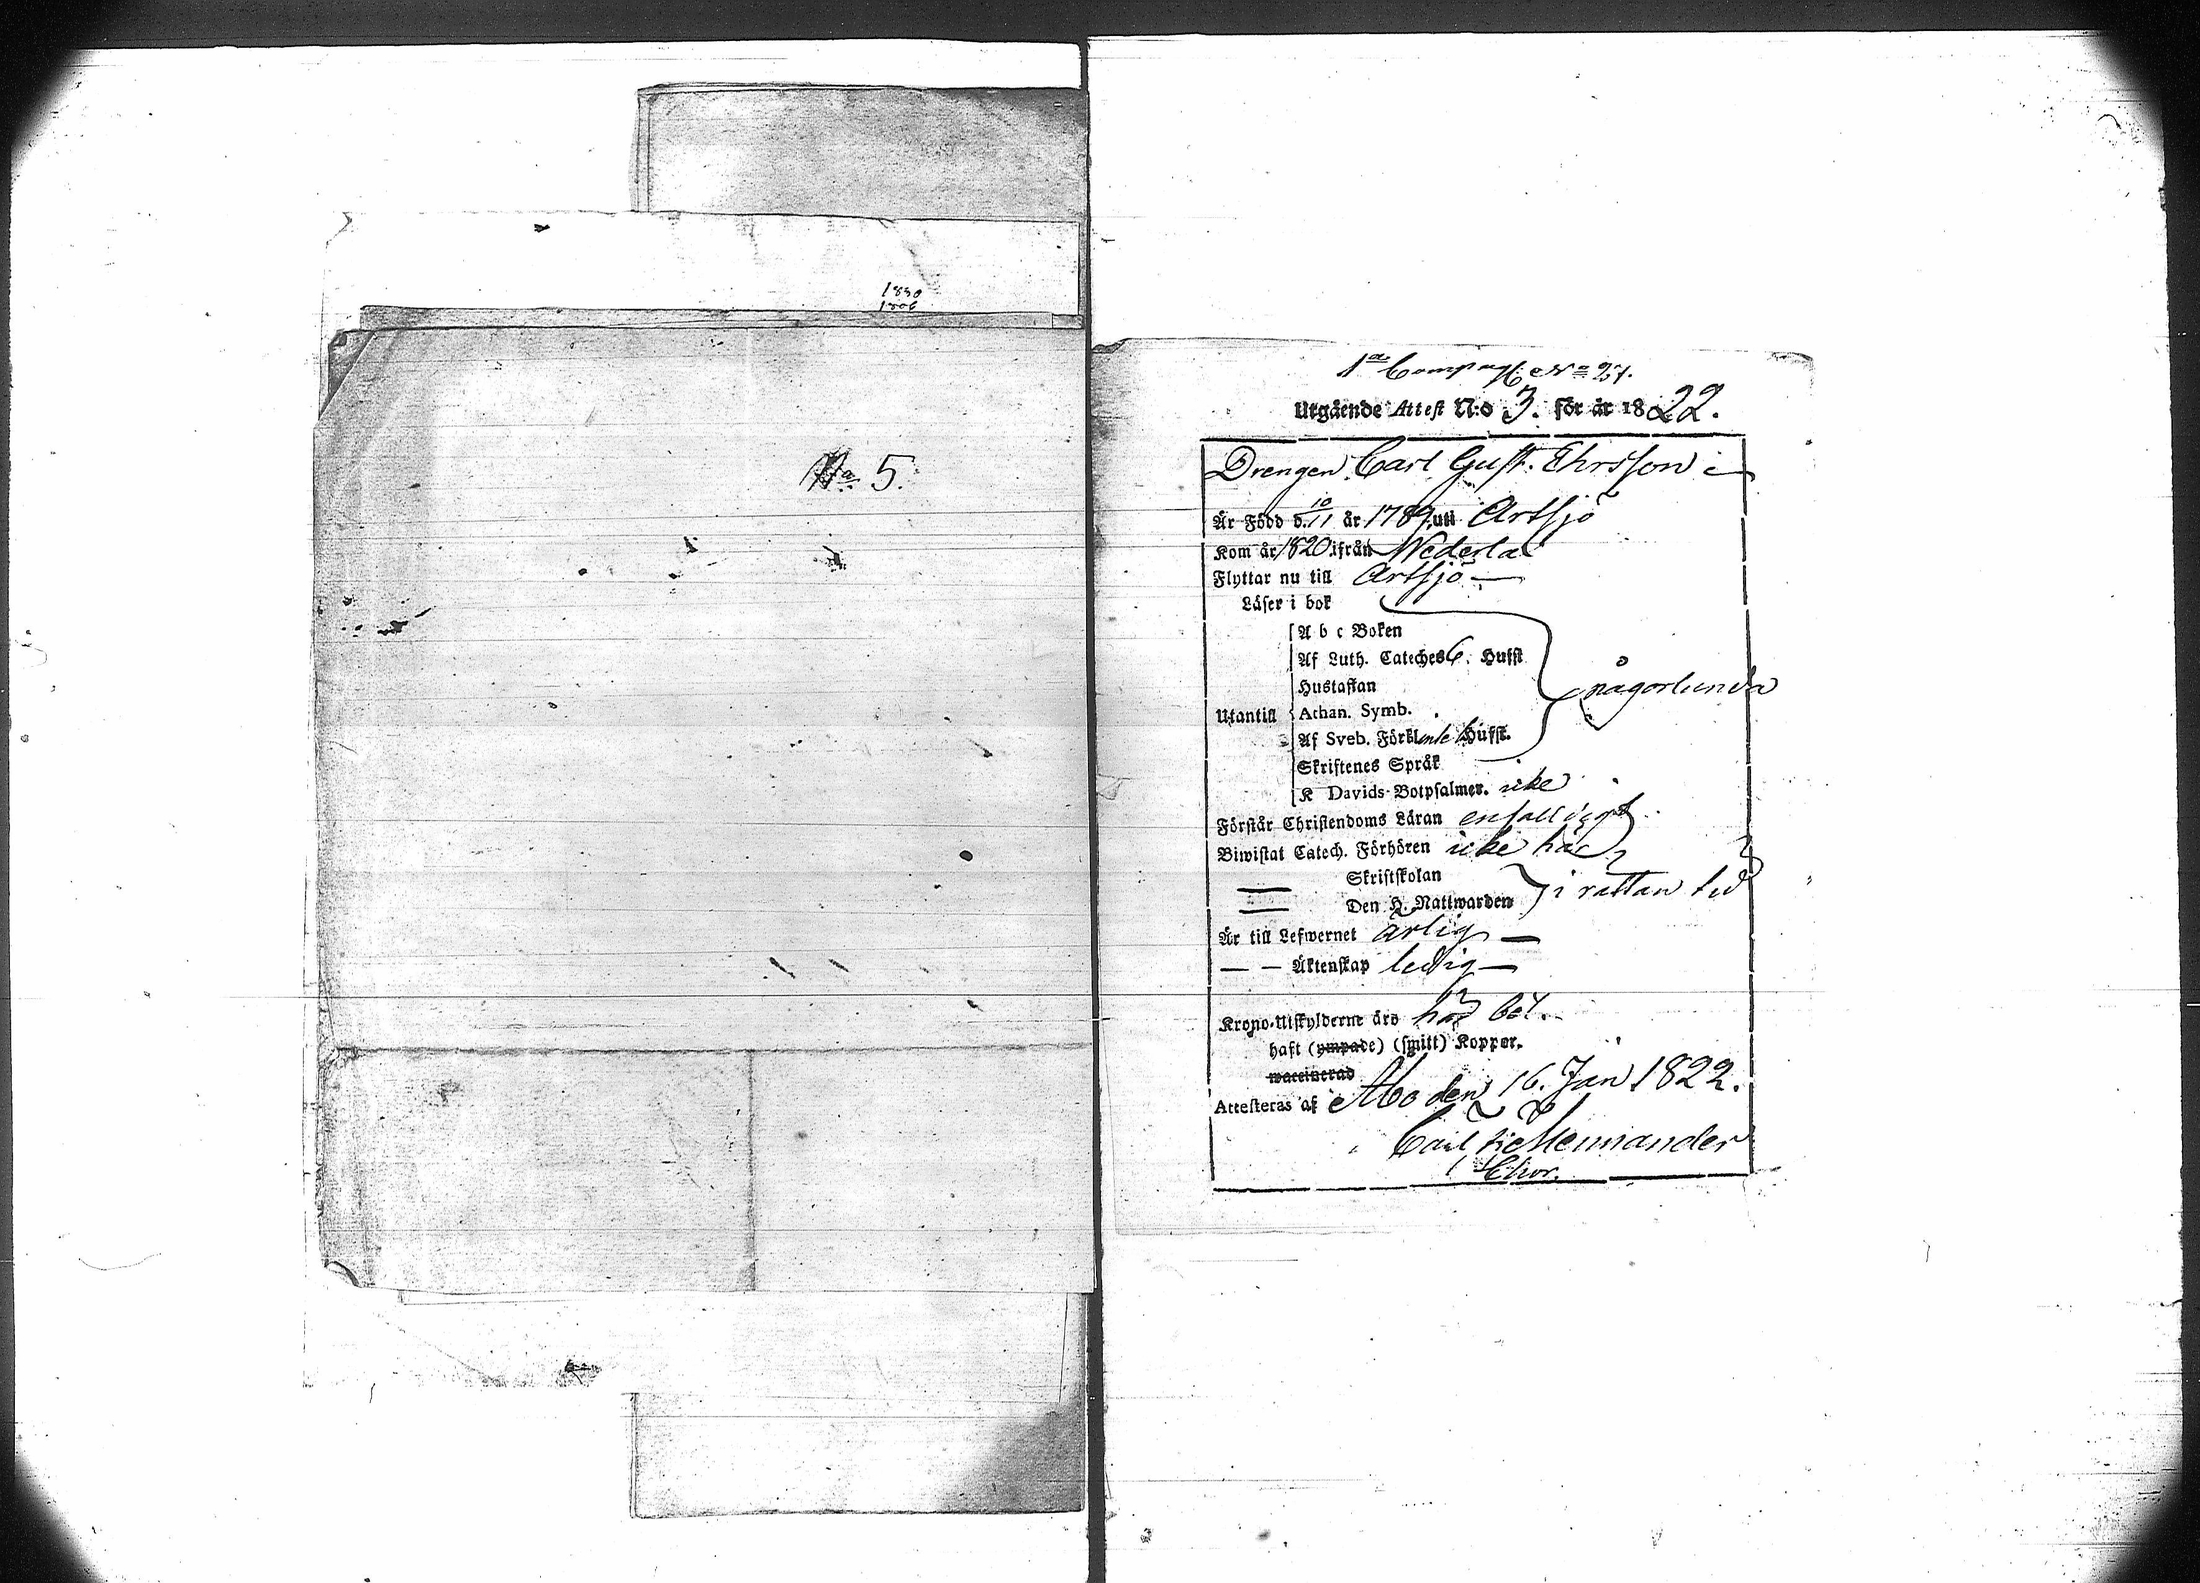 1830
1806
No 5.
1a Compag: No 27.
Utgående Attest N:o 3. för år 1822.
Drengen Carl Gust. Ehrsson
Är Född d. 10/11 år 1789 uti Artsjö
Kom år 1820 ifrån Wederla
Flyttar nu till Artsjö —
Läser i bok
A b c Boken
Af Luth. Cateches 6. Hufst
Hustaflan
någorlunda
Utantill Athan. Symb.
Af Sveb. Förkl. Hufst.
Skriftenes Språk
K Davids Botpsalmer. icke
Förstår Christendoms Läran enfalligt
Biwistat Catech. Förhören icke här
Skriftskolan
— Den H. Nattwarden i rättan tid
Är till Lefwernet ärlig —
— — Äktenskap ledig —
Krono-Utskylderne äro här bet.
haft (ympade) (smitt) Koppor.
waccinerad
Attesteras af Åbo den 16. Jan 1822.
Carl Mennander